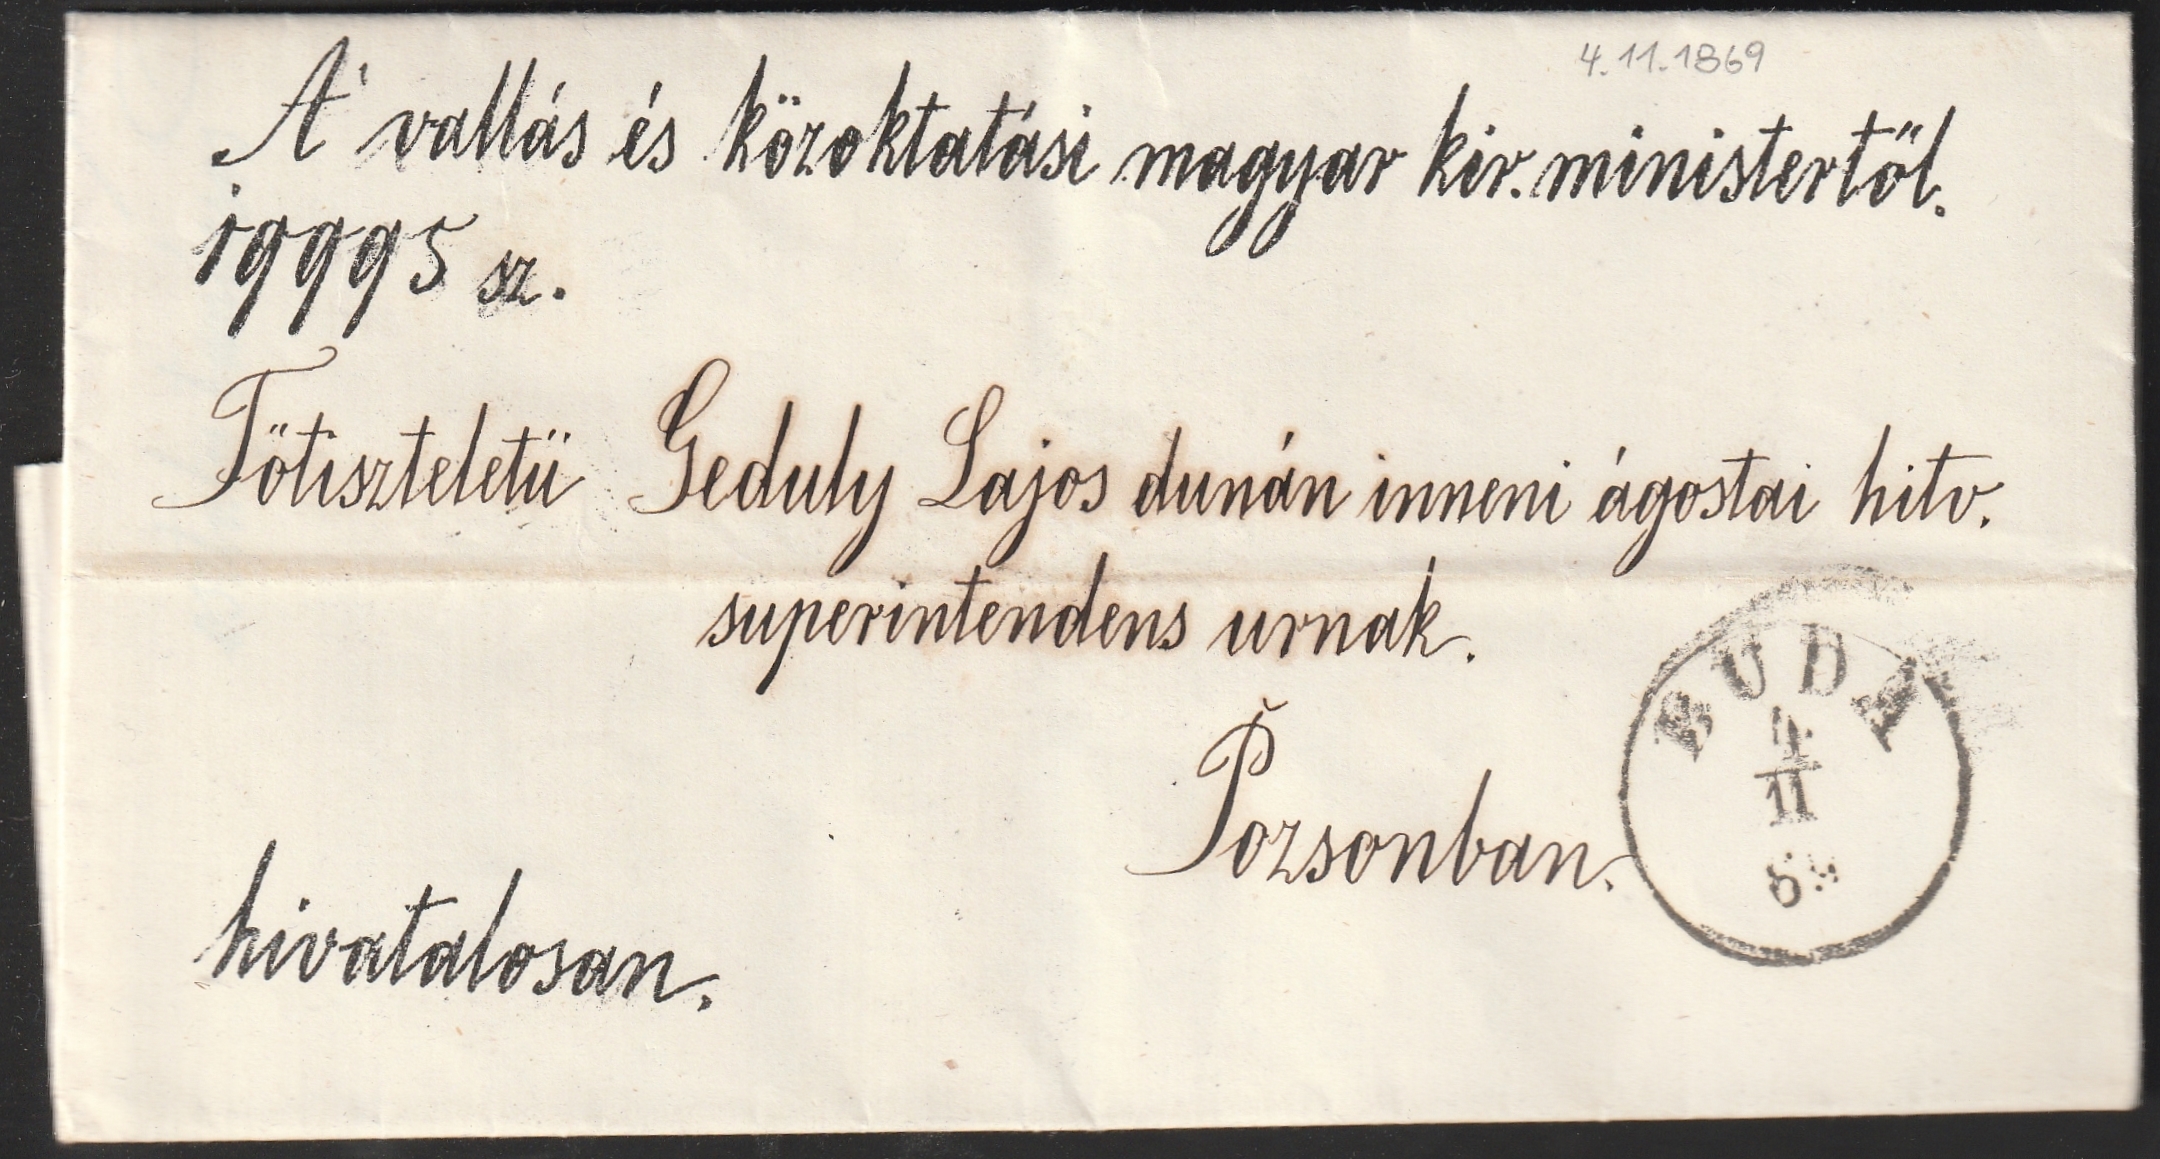 4.11.1869
A' vallás és közoktatási magyar kir. ministertől.
19995 sz.
Főtiszteletü Geduly Lajos dunán inneni ágostai hitv.
superintendens urnak.
Pozsonban.
BUDA
4
11
69
hivatalosan.